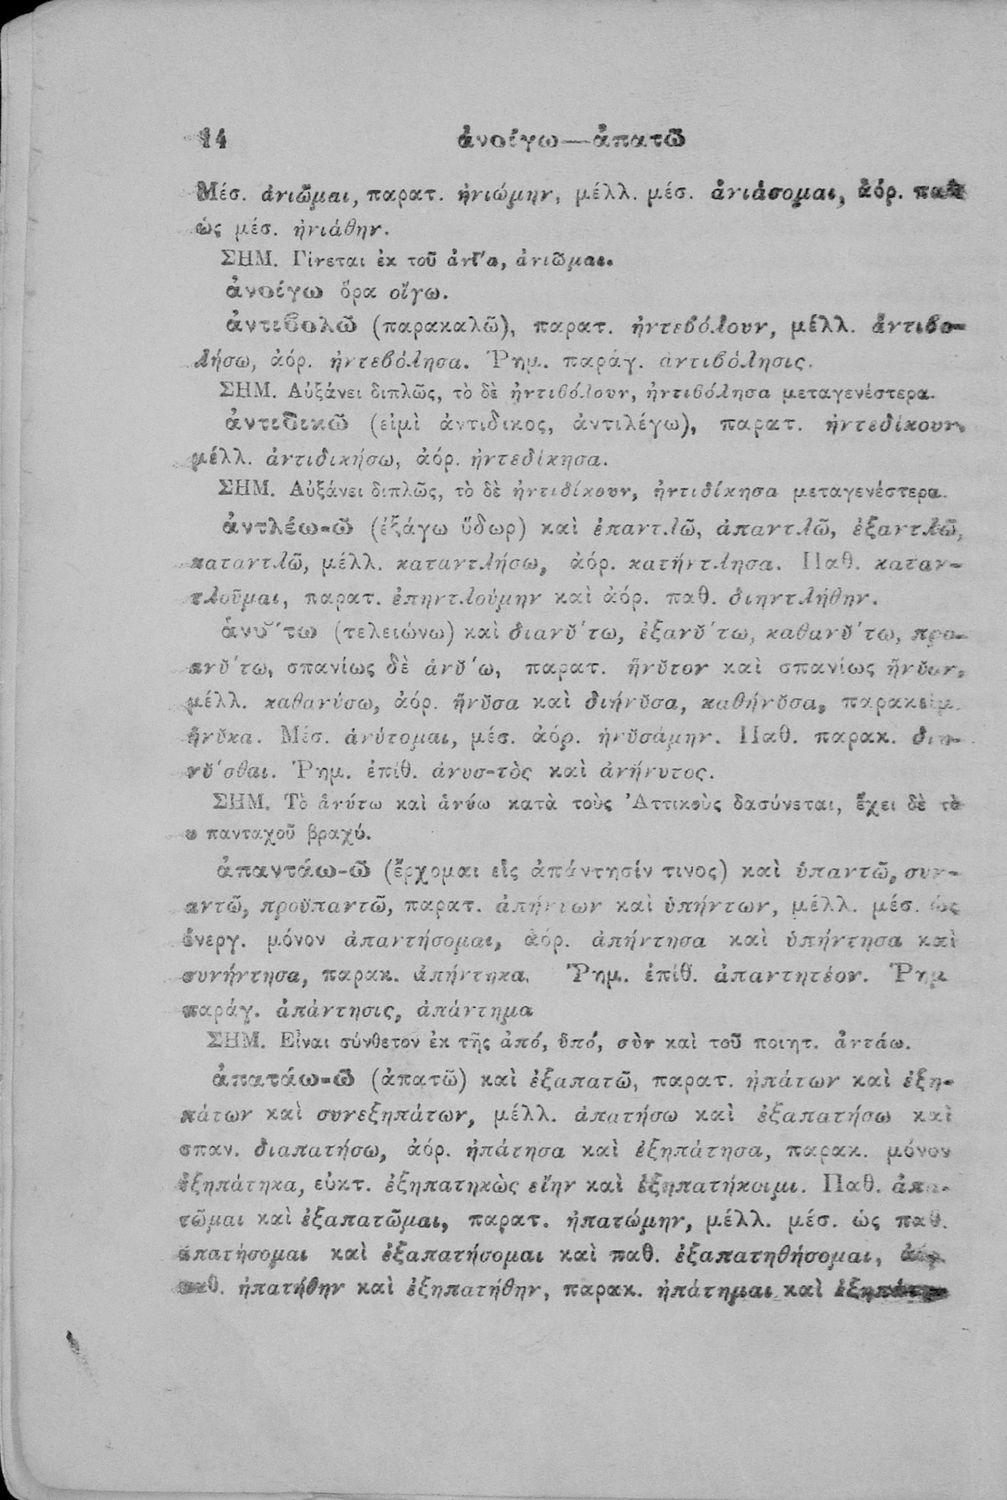 14 ἀνοίγω—ἀπατῶ
Μέσ. ἀνιῶμαι, παρατ. ἠνιώμην, μέλλ. μέσ. ἀνιάσομαι, ἀόρ. παθ
ὡς μέσ. ἠνιάθην.
ΣΗΜ. Γίνεται ἐκ τοῦ ἀνί΄α, ἀνιῶμαι.
ἀνοίγω ὅρα οἴγω.
ἀντιβολῶ (παρακαλῶ), παρατ. ἠντεβόλουν, μέλλ. ἀντιβο-
λήσω, ἀόρ. ἠντεβόλησα. Ῥημ. παράγ. ἀντιβόλησις.
ΣΗΜ. Αὐξάνει διπλῶς, τὸ δὲ ἠντιβόλουν, ἠντιβόλησα μεταγενέστερα.
ἀντιδικῶ (εἰμὶ ἀντίδικος, ἀντιλέγω), παρατ. ἠντεδίκουν,
μέλλ. ἀντιδικήσω, ἀόρ. ἠντεδίκησα.
ΣΗΜ. Αὐξάνει διπλῶς, τὸ δὲ ἠντιδίκουν, ἠντιδίκησα μεταγενέστερα.
ἀντλέω-ῶ (ἐξάγω ὕδωρ) καὶ ἐπαντλῶ, ἀπαντλῶ, ἐξαντλῶ,
καταντλῶ, μέλλ. καταντλήσω, ἀόρ. κατήντλησα. Παθ. καταν-
τλοῦμαι, παρατ. ἐπηντλούμην καὶ ἀόρ. παθ. διηντλήθην.
ἁνῠ΄τω (τελειώνω) καὶ διανῠ΄τω, ἐξανῠ΄τω, καθανῠ΄τω, προ-
ανῠ΄τω, σπανίως δὲ ἀνῠ΄ω, παρατ. ἤνῠτον καὶ σπανίως ἤνῠον,
μέλλ. καθανύσω, ἀόρ. ἤνῠσα καὶ διήνῠσα, καθήνῠσα, παρακείμ.
ἤνῠκα. Μέσ. ἀνύτομαι, μέσ. ἀόρ. ἠνῠσάμην. Παθ. παρακ. διη-
νῠ΄σθαι. Ῥημ. ἐπίθ. ἀνυσ-τὸς καὶ ἀνήνυτος.
ΣΗΜ. Τὸ ἁνύτω καὶ ἁνύω κατὰ τοὺς Ἀττικοὺς δασύνεται, ἔχει δὲ τὸ
υ πανταχοῦ βραχύ.
ἀπαντάω-ῶ (ἔρχομαι εἰς ἀπάντησίν τινος) καὶ ὑπαντῶ, συν-
αντῶ, προϋπαντῶ, παρατ. ἀπήντων καὶ ὑπήντων, μέλλ. μέσ. ὡς
ἐνεργ. μόνον ἀπαντήσομαι, ἀόρ. ἀπήντησα καὶ ὑπήντησα καὶ
συνήντησα, παρακ. ἀπήντηκα. Ῥημ. ἐπίθ. ἀπαντητέον. Ῥημ
παράγ. ἀπάντησις, ἀπάντημα
ΣΗΜ. Εἶναι σύνθετον ἐκ τῆς ἀπό, ὑπό, σὺν καὶ τοῦ ποιητ. ἀντάω.
ἀπατάω-ῶ (ἀπατῶ) καὶ ἐξαπατῶ, παρατ. ἠπάτων καὶ ἐξη-
πάτων καὶ συνεξηπάτων, μέλλ. ἀπατήσω καὶ ἐξαπατήσω καὶ
σπαν. διαπατήσω, ἀόρ. ἠπάτησα καὶ ἐξηπάτησα, παρακ. μόνον
ἐξηπάτηκα, εὐκτ. ἐξηπατηκὼς εἴην καὶ ἐξηπατήκοιμι. Παθ. ἀπα-
τῶμαι καὶ ἐξαπατῶμαι, παρατ. ἠπατώμην, μέλλ. μέσ. ὡς παθ.
ἀπατήσομαι καὶ ἐξαπατήσομαι καὶ παθ. ἐξαπατηθήσομαι, ἀόρ.
παθ. ἠπατήθην καὶ ἐξηπατήθην, παρακ. ἠπάτημαι καὶ